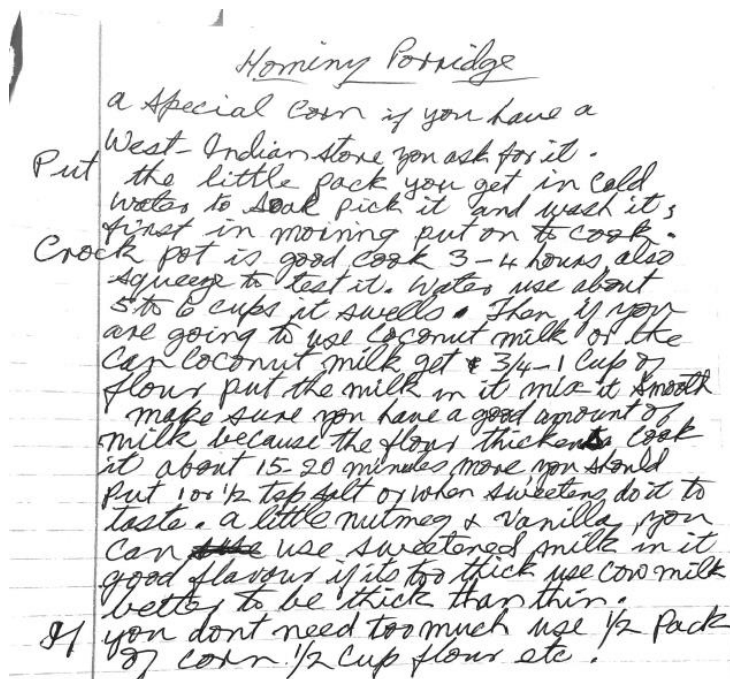 Hominy Porridge
a special corn if you have a
West-Indian store you ask for it.
Put the little pack you get in cold
water to soak pick it and wash it,
first in moining put on to cook.
Crock pot is good cook 3-4 hours, also
squeeze to test it. Water use about
5 to 6 cups it swells. Then if you
are going to use coconut milk or the
can coconut milk get 3/4-1 cup of
flour put the milk in it mix it smooth
make sure you have a good amount of
milk because the flour thickens cook
it about 15-20 minutes more you should
put 1 or 1/2 tsp salt or when sweetens do it to
taste. a little nutmeg & vanilla, you
can use sweetened milk in it
good flavour if its too thick use cow milk
better to be thick than thin.
If you dont need too much use 1/2 pack
of corn 1/2 cup flour etc.